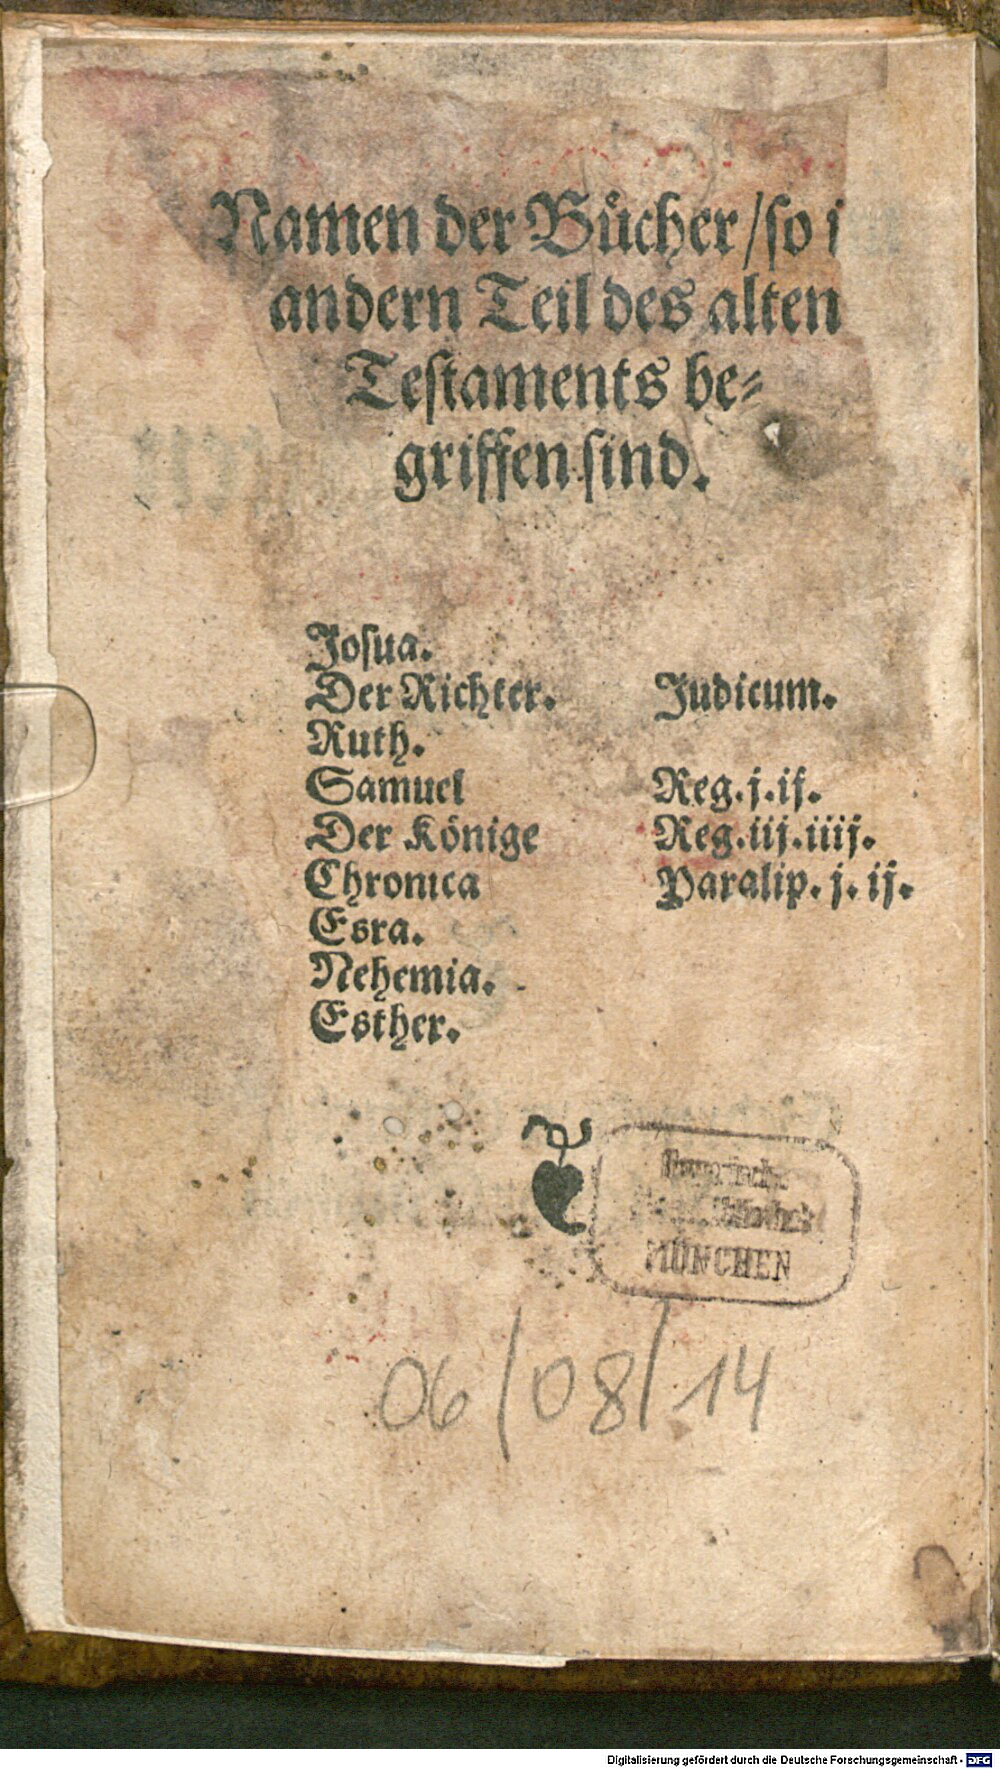 Namen der Bücher / so i
andern Teil des alten
Testaments be⸗
griffen sind.
Josua.
Der Richter. Judicum.
Ruth.
Samuel Reg. j. ij.
Der Könige Reg. iij. iiij.
Chronica Paralip. j. ij.
Esra.
Nehemia.
Esther.
MÜNCHEN
06/08/14
Digitalisierung gefördert durch die Deutsche Forschungsgemeinschaft - DFG